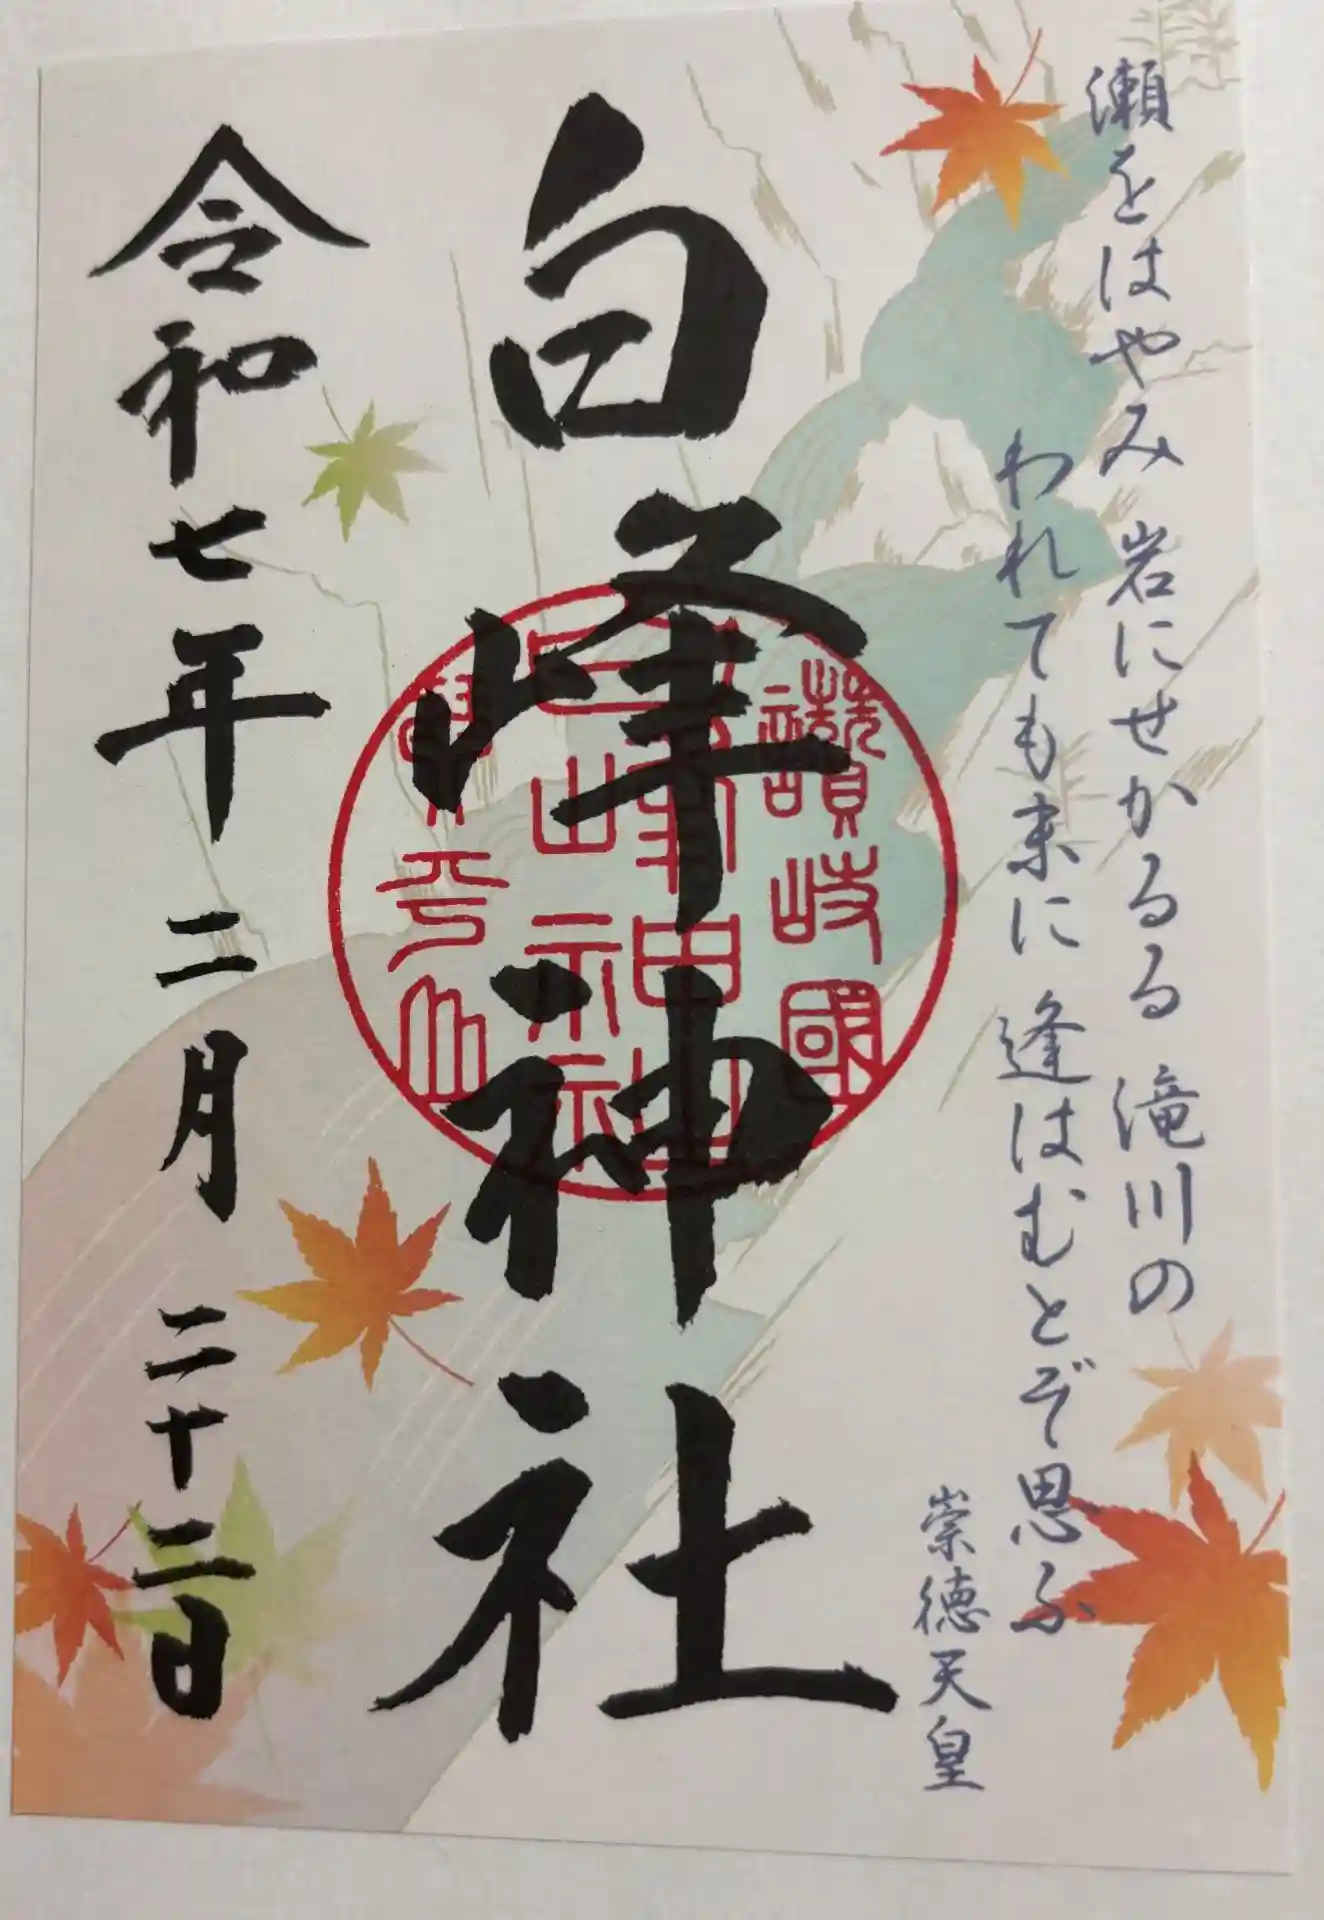 瀬をはやみ 岩にせかるる 滝川の
われても末に 逢はむとぞ思ふ
崇徳天皇
白峰神社
讃岐國
白峰神社
令和七年二月二十二日